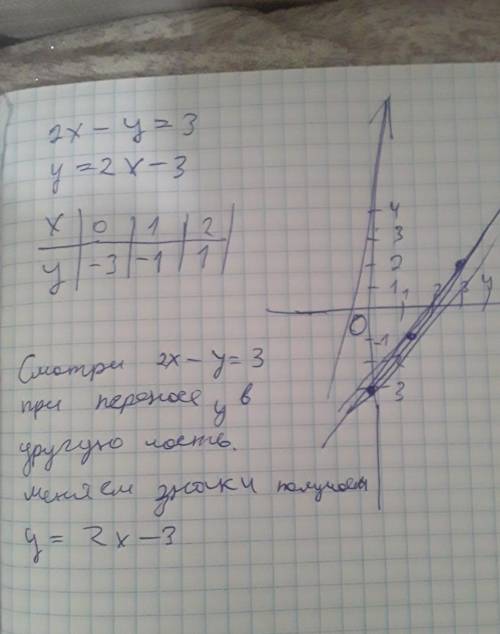 2x - y = 3
y = 2x - 3
x | 0 | 1 | 2
y | -3 | -1 | 1
4
3
2
1 1 2 3 4
0
-1
3
Смотри 2x - y = 3
при переносе y в
другую часть.
меняем знаки получаем
y = 2x - 3